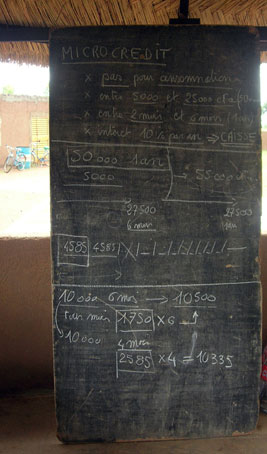 MICROCREDIT
x pas par
x entre 5000 et 25000
x entre 2 mois et 6 mois (1an)
x intérêt 10% par an → CAISSE
50.000 1an
5000
→ 55000
27500
6 mois
27500
4585 4585
10000 6 mois → 10500
1750 x 6
10000
4 mois
2585 x 4 = 10335